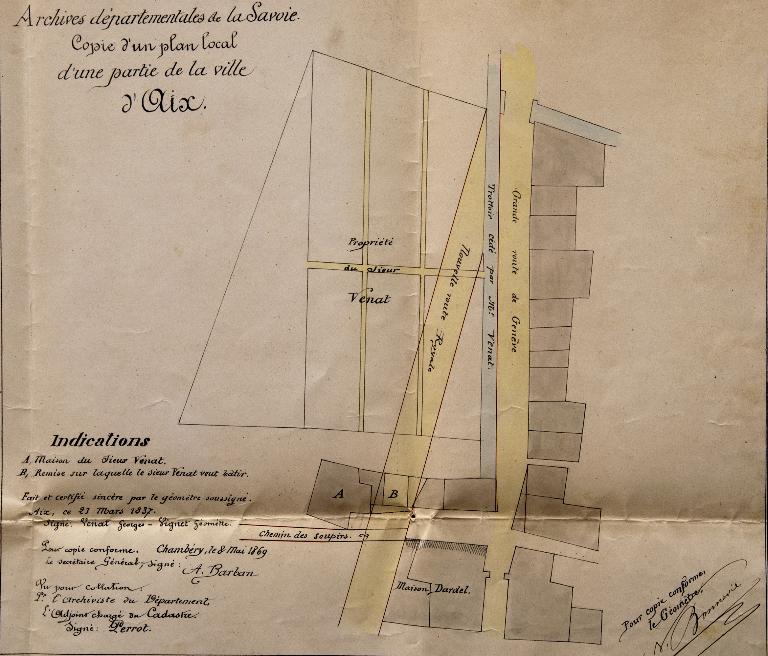 Archives départementales de la Savoie.
Copie d'un plan local
d'une partie de la ville
d'Aix.
Propriété
du sieur
Venat
Nouvelle route Royale
Trottoir cédé par Mr. Venat.
Grande route de Genève
Indications
A, Maison du Sieur Venat.
B, Remise sur laquelle le sieur Venat veut bâtir.
Fait et certifié sincère par le géomètre soussigné.
Aix, ce 23 Mars 1837.
Signé: Venat Georges - Vignet Géomètre.
Pour copie conforme. Chambéry, le 8 Mai 1869
Le secrétaire Général, signé:
A. Barban
Vu pour collation:
Pr. l'Archiviste du Département,
L'Adjoint chargé du Cadastre.
Signé: Perrot.
A
B
Chemin des soupirs.
Maison Dardel.
Pour copie conforme.
le Géomètre,